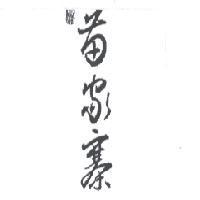 苗家寨